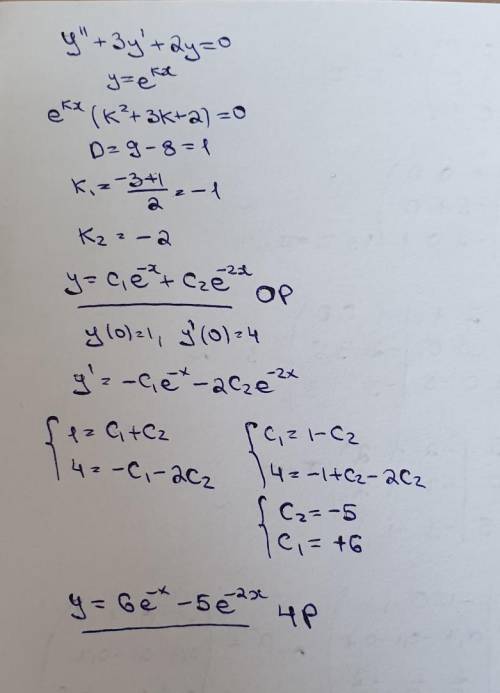 y'' + 3y' + 2y = 0
y = e^{kx}
e^{kx} (k² + 3k + 2) = 0
D = 9 - 8 = 1
k₁ = \frac{-3+1}{2} = -1
k₂ = -2
y = C₁e^{-x} + C₂e^{-2x} ОР
y(0) = 1, y'(0) = 4
y' = -C₁e^{-x} - 2C₂e^{-2x}
{ 1 = C₁ + C₂
4 = -C₁ - 2C₂
{ C₁ = 1 - C₂
4 = -1 + C₂ - 2C₂
{ C₂ = -5
C₁ = +6
y = 6e^{-x} - 5e^{-2x} ЧР